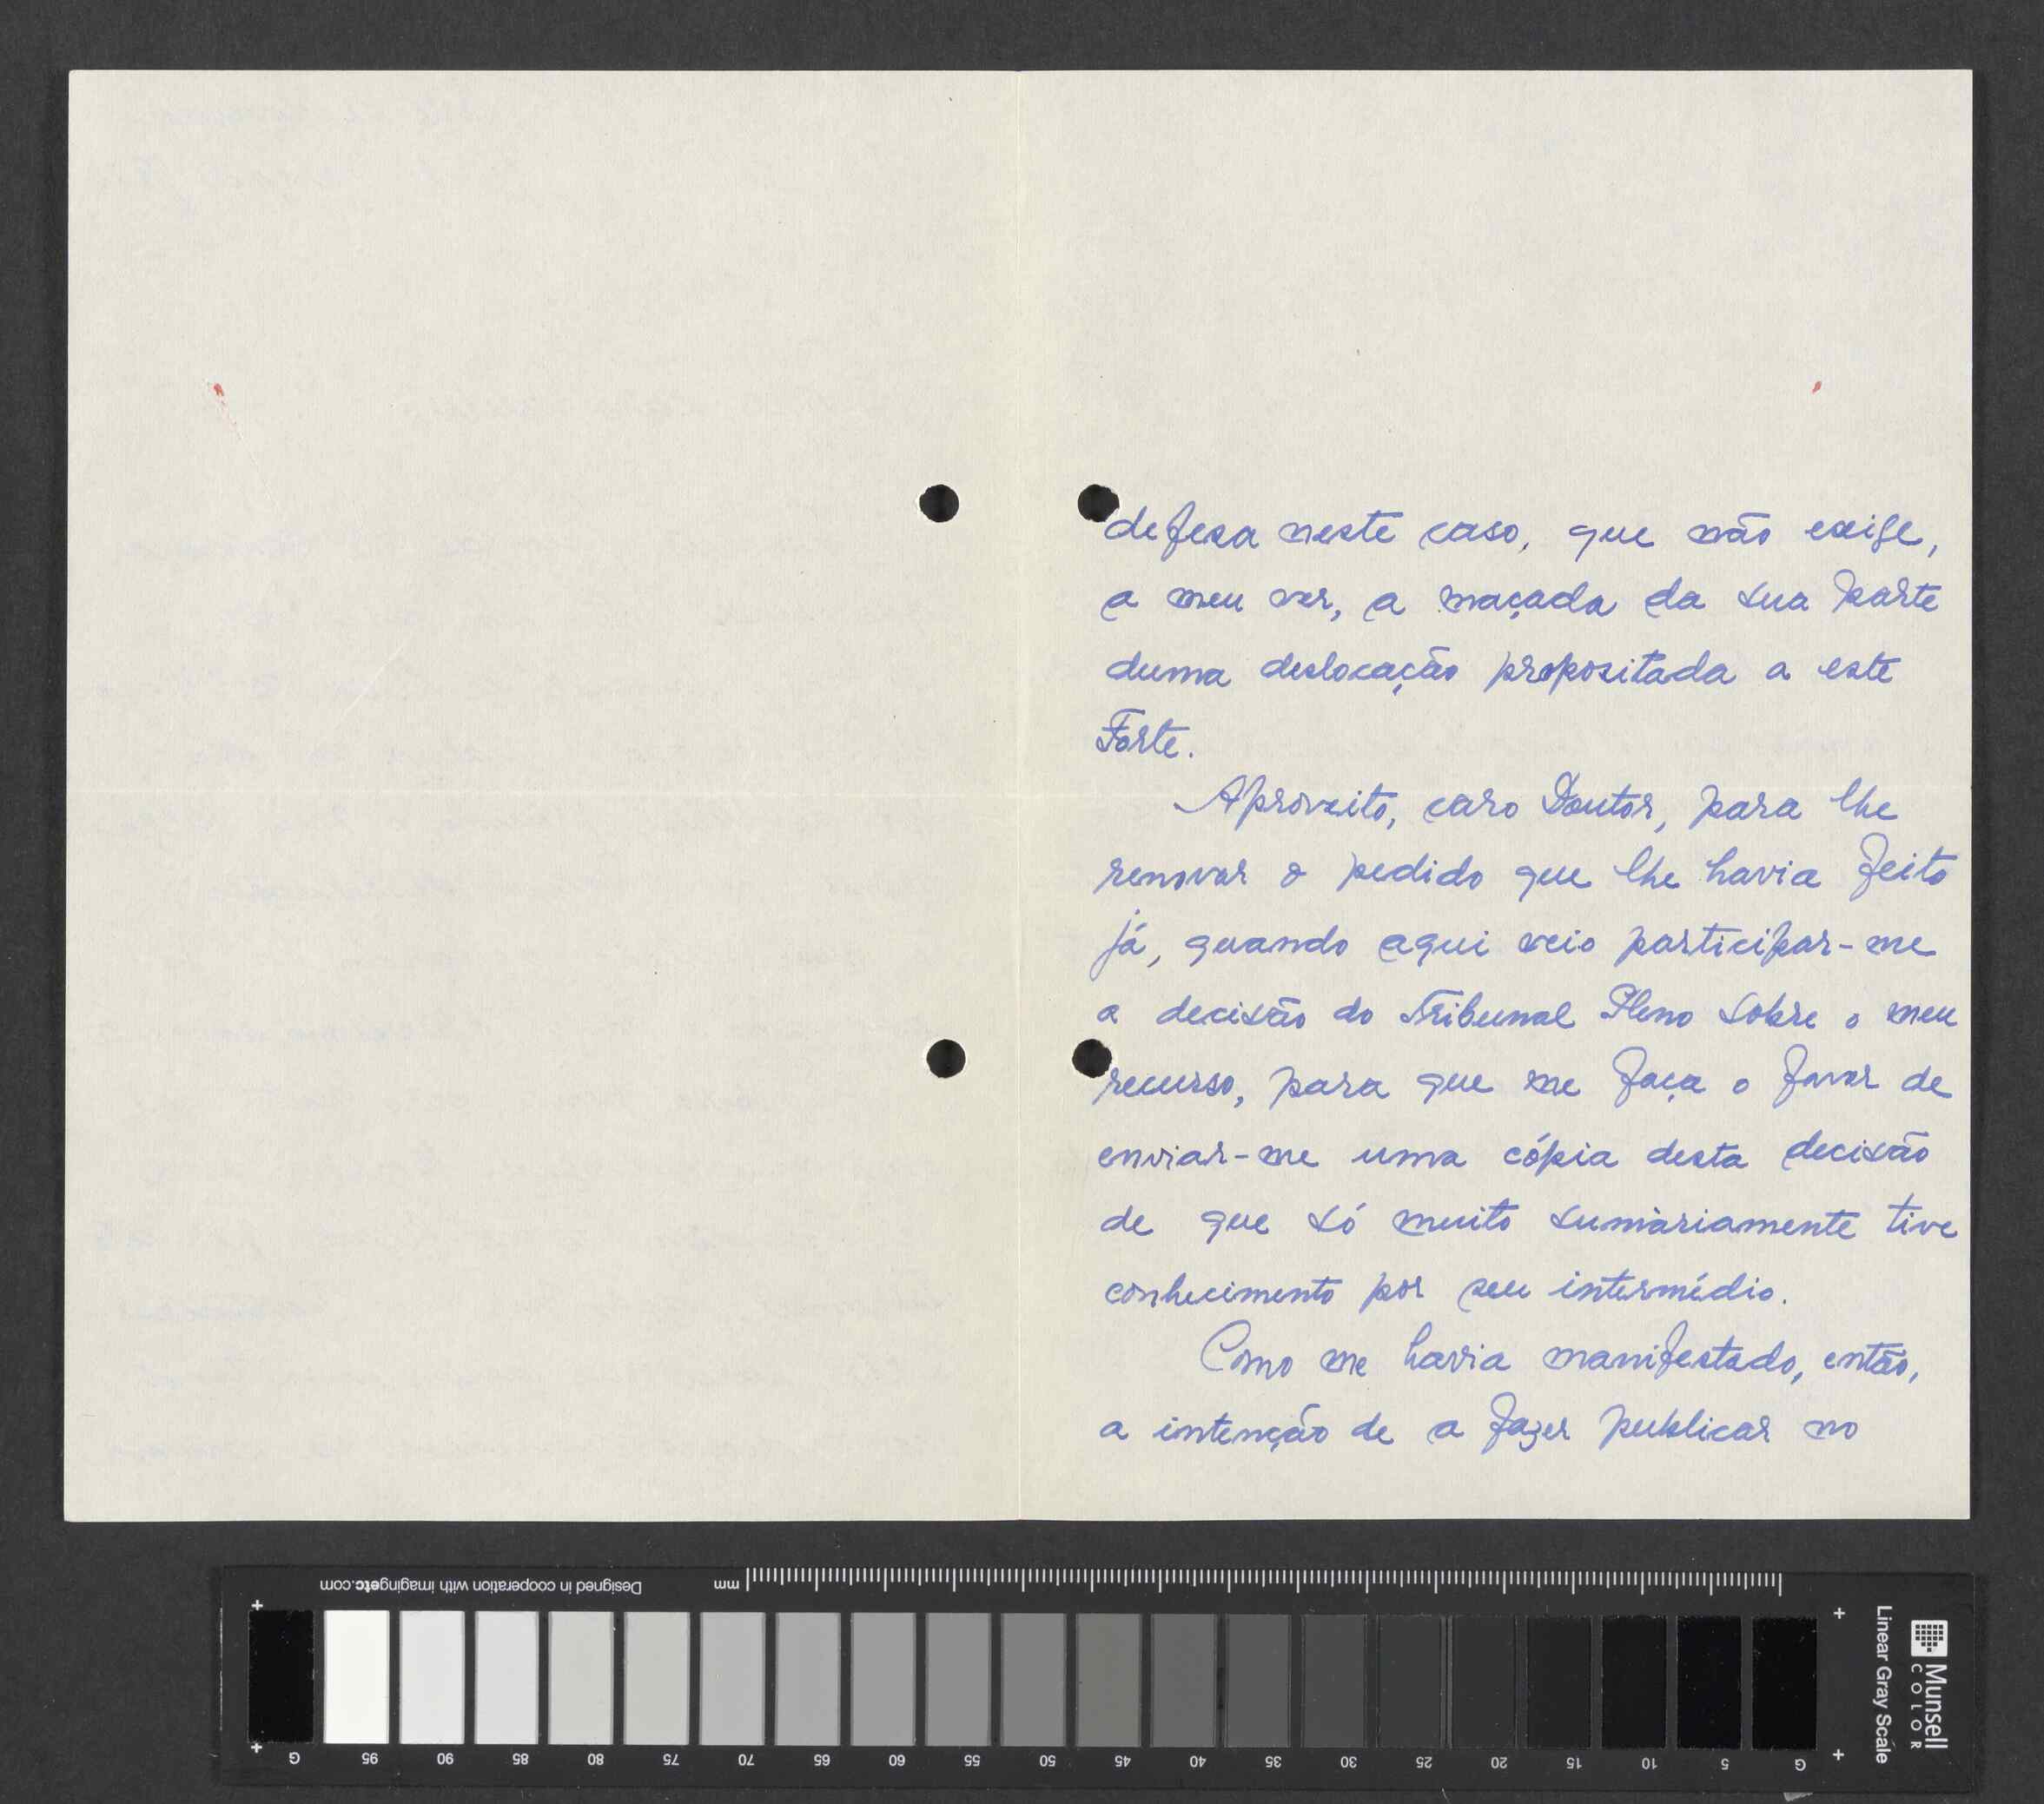 defesa neste caso, que não exige,
a meu ver, a maçada da sua parte
duma deslocação propositada a este
Forte.
Aproveito, caro Doutor, para lhe
renovar o pedido que lhe havia feito
já, quando aqui veio participar-me
a decisão do Tribunal Pleno sobre o meu
recurso, para que me faça o favor de
enviar-me uma cópia desta decisão
de que só muito sumàriamente tive
conhecimento por seu intermédio.
Como me havia manifestado, então,
a intenção de a fazer publicar no
Designed in cooperation with imagingetc.com
mm
G 95 90 85 80 75 70 65 60 55 50 45 40 35 30 25 20 15 10 5 G
Munsell
COLOR
Linear Gray Scale